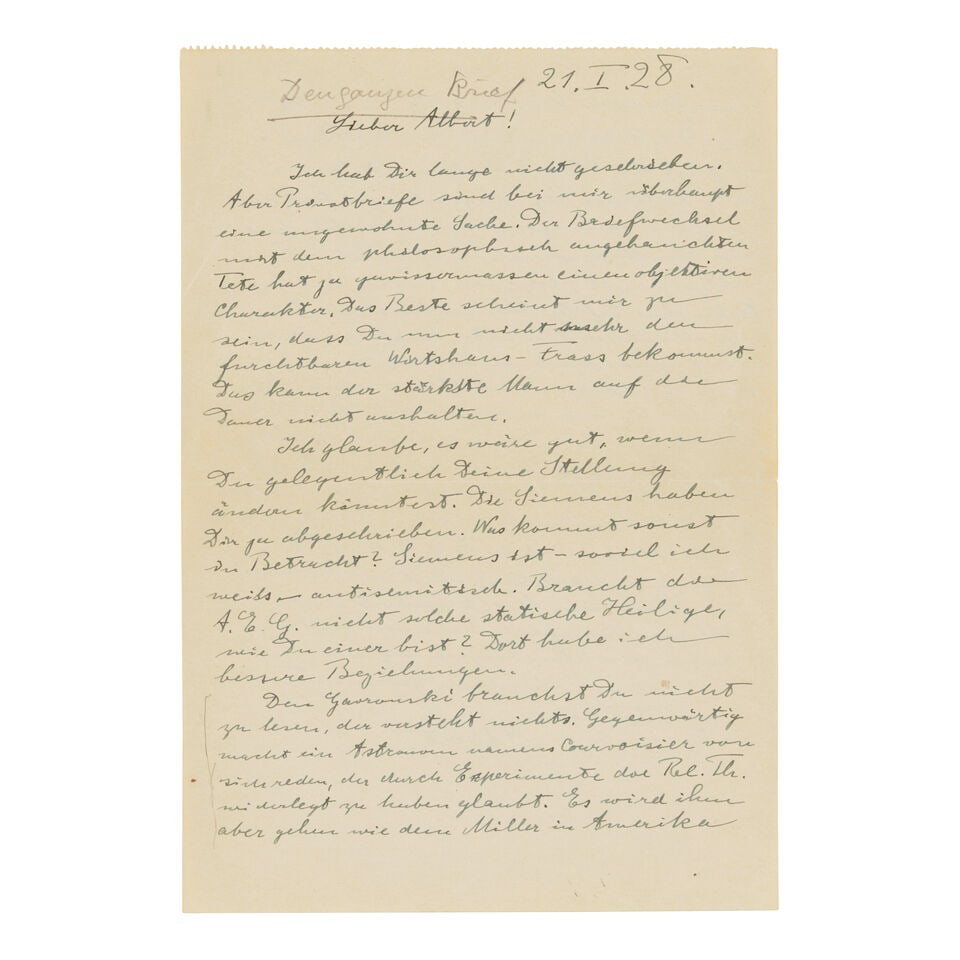 Den ganzen Brief 21.I.28.
Lieber Albert!
Ich hab Dir lange nicht geschrieben.
Aber Privatbriefe sind bei mir überhaupt
eine ungewohnte Sache. Der Briefwechsel
mit dem philosophisch angehauchten
Tete hat ja gewissermassen einen objektiven
Charakter. Das Beste scheint mir zu
sein, dass Du nun nicht mehr den
furchtbaren Wirtshaus-Frass bekommst.
Das kann der stärkste Mann auf die
Dauer nicht aushalten.
Ich glaube, es wäre gut, wenn
Du gelegentlich Deine Stellung
ändern könntest. Die Siemens haben
Dir ja abgeschrieben. Was kommt sonst
in Betracht? Siemens ist – soviel ich
weiss – antisemitisch. Braucht die
A. E. G. nicht solche statische Heilige,
wie Du einer bist? Dort habe ich
bessere Beziehungen.
Den Gavronski brauchst Du nicht
zu lesen, der versteht nichts. Gegenwärtig
macht ein Astronom namens Courvoisier von
sich reden, der durch Experimente die Rel. Th.
widerlegt zu haben glaubt. Es wird ihm
aber gehen wie dem Miller in Amerika